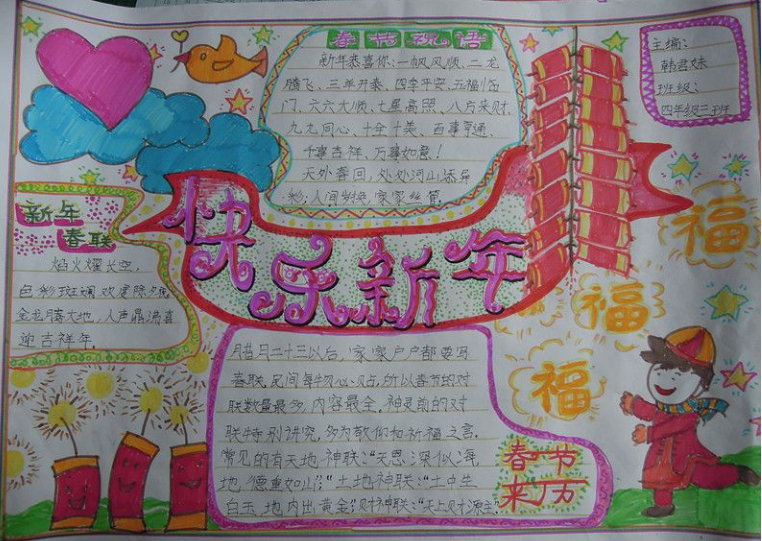 春节祝语
新年恭喜你:一帆风顺、二龙
腾飞、三羊开泰、四季平安、五福临
门、六六大顺、七星高照、八方来财、
九九同心、十全十美、百事亨通、
千事吉祥、万事如意!
天外春回,处处河山添异
彩;人间岁换,家家丝管
主编:
韩君妹
班级:
四年级三班
新年
春联
焰火耀长空,
色彩斑斓欢度除夕夜
金龙腾大地,人声鼎沸喜
迎吉祥年
快乐新年
福
福
福
腊月二十三以后,家家户户都要写
春联,民间每物必贴,所以春节的对
联数量最多,内容最全。神灵前的对
联特别讲究,多为敬仰和祈福之言。
常见的有天地神联:“天恩深似海
地德重如山”土地神联:“土中生
白玉,地内出黄金”财神联:“天上财源主”
春节
来历